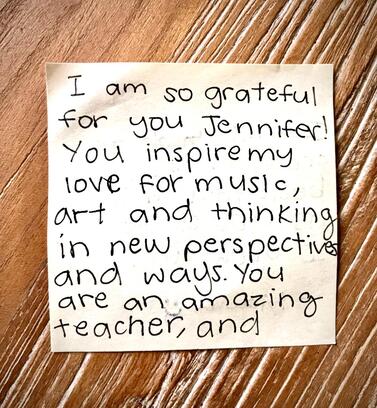 I am so grateful
for you Jennifer!
You inspire my
love for music,
art and thinking
in new perspectives
and ways. You
are an amazing
teacher, and